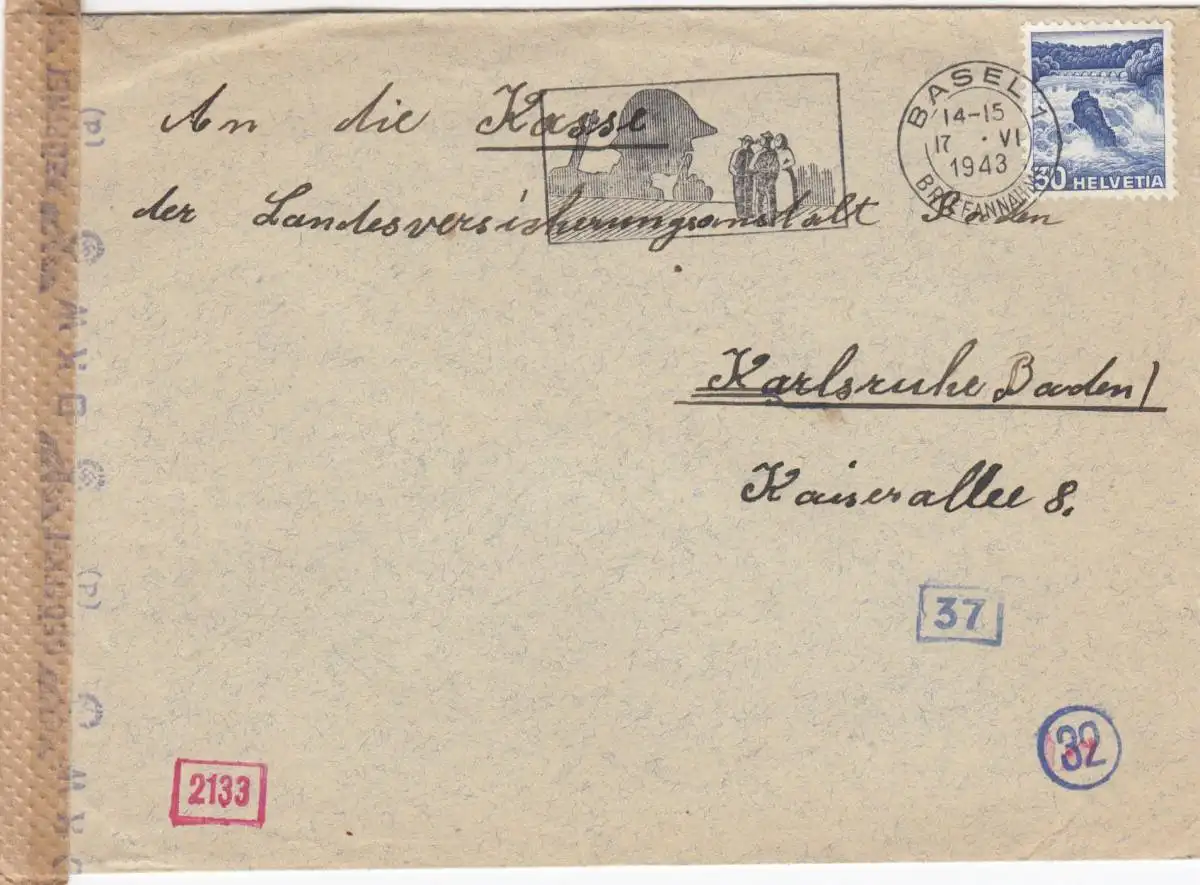 An die Kasse
der Landesversicherungsanstalt Baden
Karlsruhe Baden/
Kaiserallee 8.
BASEL 1
14-15
17 · VI
1943
BRIEFANNAHME
30 HELVETIA
37
32
2133
(d)
(d)